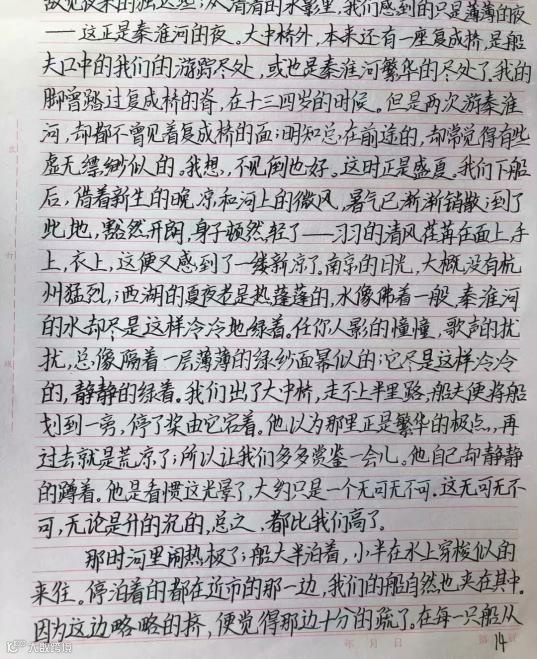 故觉夜来的独迟些；从清清的水影里，我们感到的只是薄薄的夜
——这正是秦淮河的夜。大中桥外，本来还有一座复成桥，是船
夫口中的我们的游踪尽处，或也是秦淮河繁华的尽处了。我的
脚曾踏过复成桥的脊，在十三四岁的时候。但是两次游秦淮
河，却都不曾见着复成桥的面；明知总在前途的，却常觉得有些
虚无缥缈似的。我想，不见倒也好。这时正是盛夏。我们下船
后，借着新生的晚凉和河上的微风，暑气已渐渐销散；到了
此地，豁然开朗，身子顿然轻了——习习的清风荏苒在面上，手
上，衣上，这便又感到了一缕新凉了。南京的日光，大概没有杭
州猛烈；西湖的夏夜老是热蓬蓬的，水像沸着一般，秦淮河
的水却尽是这样冷冷地绿着。任你人影的憧憧，歌声的扰
扰，总像隔着一层薄薄的绿纱面幂似的；它尽是这样冷冷
的，静静的绿着。我们出了大中桥，走不上半里路，船夫便将船
划到一旁，停了桨由它宕着。他以为那里正是繁华的极点，再
过去就是荒凉了；所以让我们多多赏鉴一会儿。他自己却静静
的蹲着。他是看惯这光景了，大约只是一个无可无不可。这无可无不
可，无论是升的沉的，总之，都比我们高了。
那时河里闹热极了；船大半泊着，小半在水上穿梭似的
来往。停泊着的都在近市的那一边，我们的船自然也夹在其中。
因为这边略略的挤，便觉得那边十分的疏了。在每一只船从
年 月 日
第 14 页
大成跨境